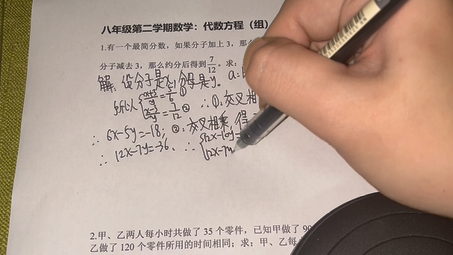 八年级第二学期数学：代数方程（组）
1.有一个最简分数，如果分子加上3，那么
分子减去3，那么约分后得到7/12，求：
解：设分子是x，分母是y。
∴ ①：交叉相
∴ 6x-5y=-18； ②：交叉相乘，得
∴ 12x-7y=36， ∴ {12x-10y=
{12x-7y
2.甲、乙两人每小时共做了 35 个零件，已知甲做了 90
乙做了 120 个零件所用的时间相同；求：甲、乙每